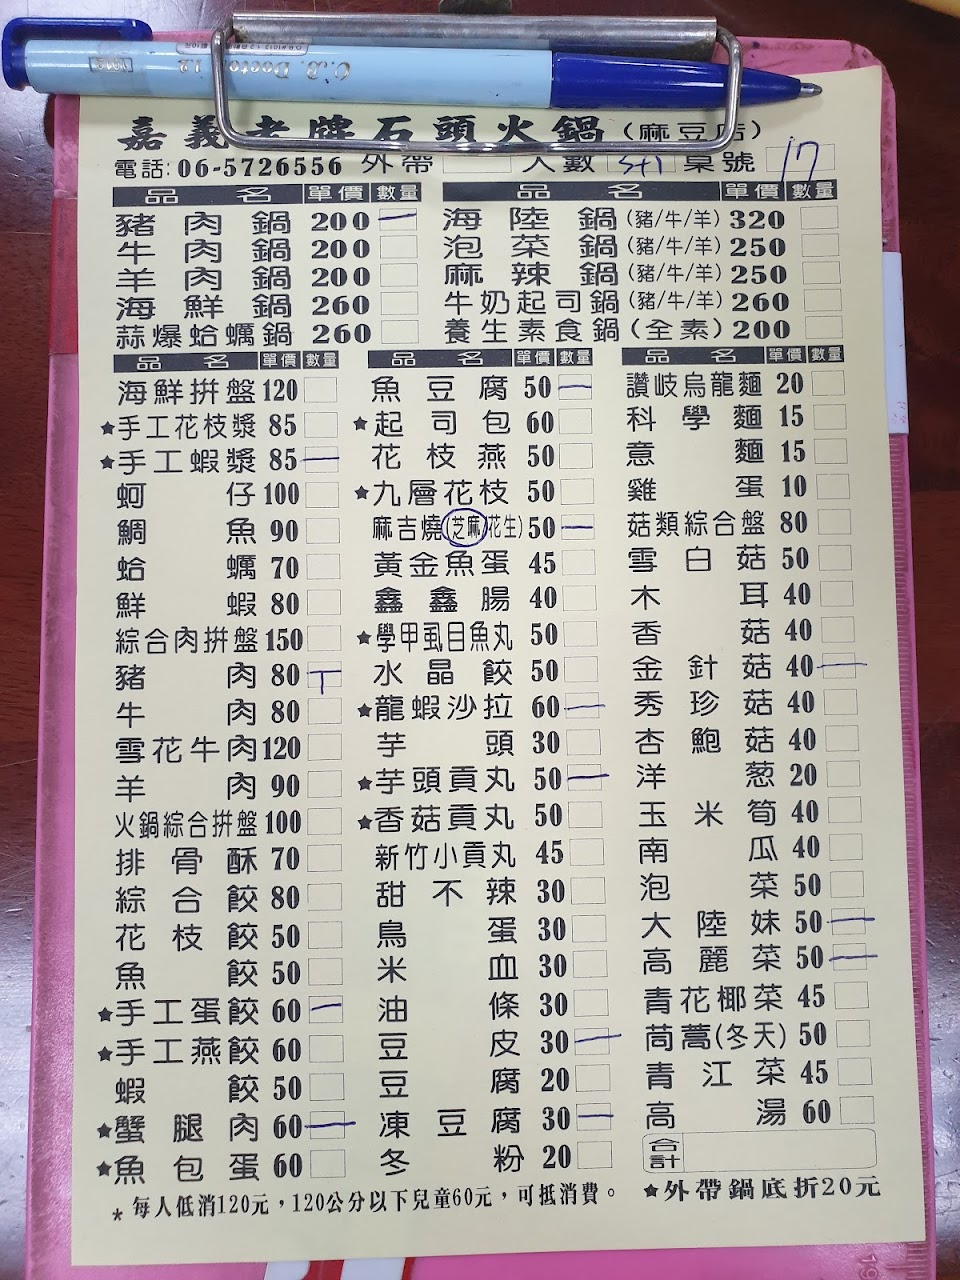 嘉義老牌石頭火鍋(麻豆店)
電話:06-5726556 外帶 人數 桌號 17
品名 單價 數量
豬肉鍋 200 一
牛肉鍋 200
羊肉鍋 200
海鮮鍋 260
蒜爆蛤蠣鍋 260
品名 單價 數量
海陸鍋(豬/牛/羊) 320
泡菜鍋(豬/牛/羊) 250
麻辣鍋(豬/牛/羊) 250
牛奶起司鍋(豬/牛/羊) 260
養生素食鍋(全素) 200
品名 單價 數量
海鮮拼盤 120
★手工花枝漿 85
★手工蝦漿 85 一
蚵仔 100
鯛魚 90
蛤蠣 70
鮮蝦 80
綜合肉拼盤 150
豬肉 80 丅
牛肉 80
雪花牛肉 120
羊肉 90
火鍋綜合拼盤 100
排骨酥 70
綜合餃 80
花枝餃 50
魚餃 50
★手工蛋餃 60 一
★手工燕餃 60
蝦餃 50
★蟹腿肉 60 一
★魚包蛋 60
品名 單價 數量
魚豆腐 50 一
★起司包 60
花枝燕 50
★九層花枝 50
麻吉燒(芝麻/花生) 50 一
黃金魚蛋 45
鑫鑫腸 40
★學甲虱目魚丸 50
水晶餃 50
★龍蝦沙拉 60 一
芋頭 30
★芋頭貢丸 50 一
★香菇貢丸 50
新竹小貢丸 45
甜不辣 30
鳥蛋 30
米血 30
油條 30
豆皮 30 一
豆腐 20
凍豆腐 30 一
冬粉 20
品名 單價 數量
讚岐烏龍麵 20
科學麵 15
意麵 15
雞蛋 10
菇類綜合盤 80
雪白菇 50
木耳 40
香菇 40
金針菇 40 一
秀珍菇 40
杏鮑菇 40
洋葱 20
玉米筍 40
南瓜 40
泡菜 50
大陸妹 50 一
高麗菜 50 一
青花椰菜 45
茼蒿(冬天) 50
青江菜 45
高湯 60
合計
*每人低消120元,120公分以下兒童60元,可抵消費。
★外帶鍋底折20元